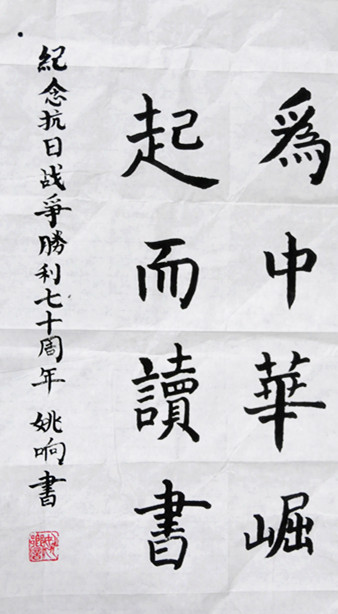 爲中華崛
起而讀書
紀念抗日战爭勝利七十周年 姚响書